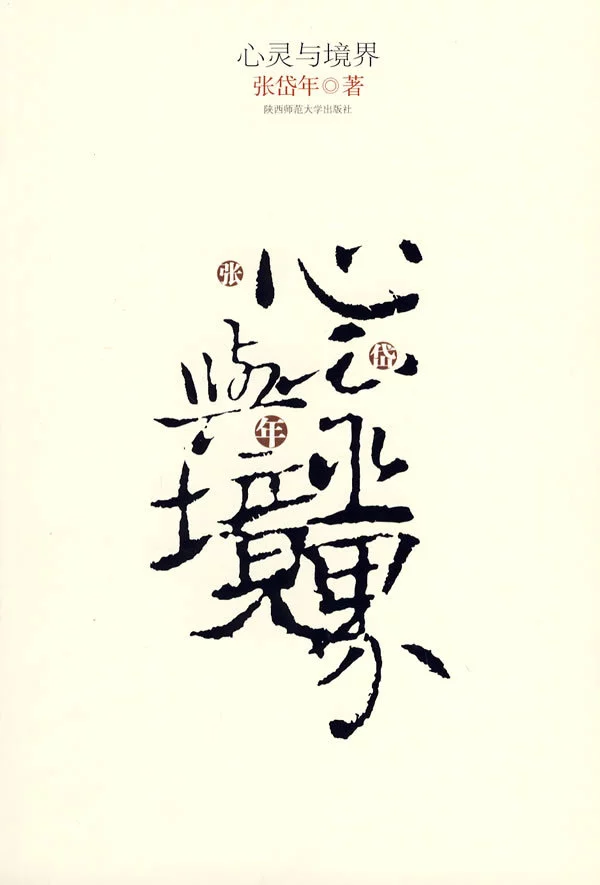 心灵与境界
张岱年◎著
陕西师范大学出版社
心
张
岱
與
年
境
界